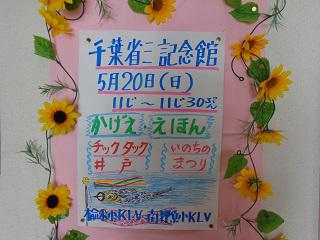 千葉省三記念館
5月20日(日)
11じ〜11じ30ぷん
かげえ・えほん
チックタック いのちの
井戸 まつり
楡木小KLV 南押原小KLV